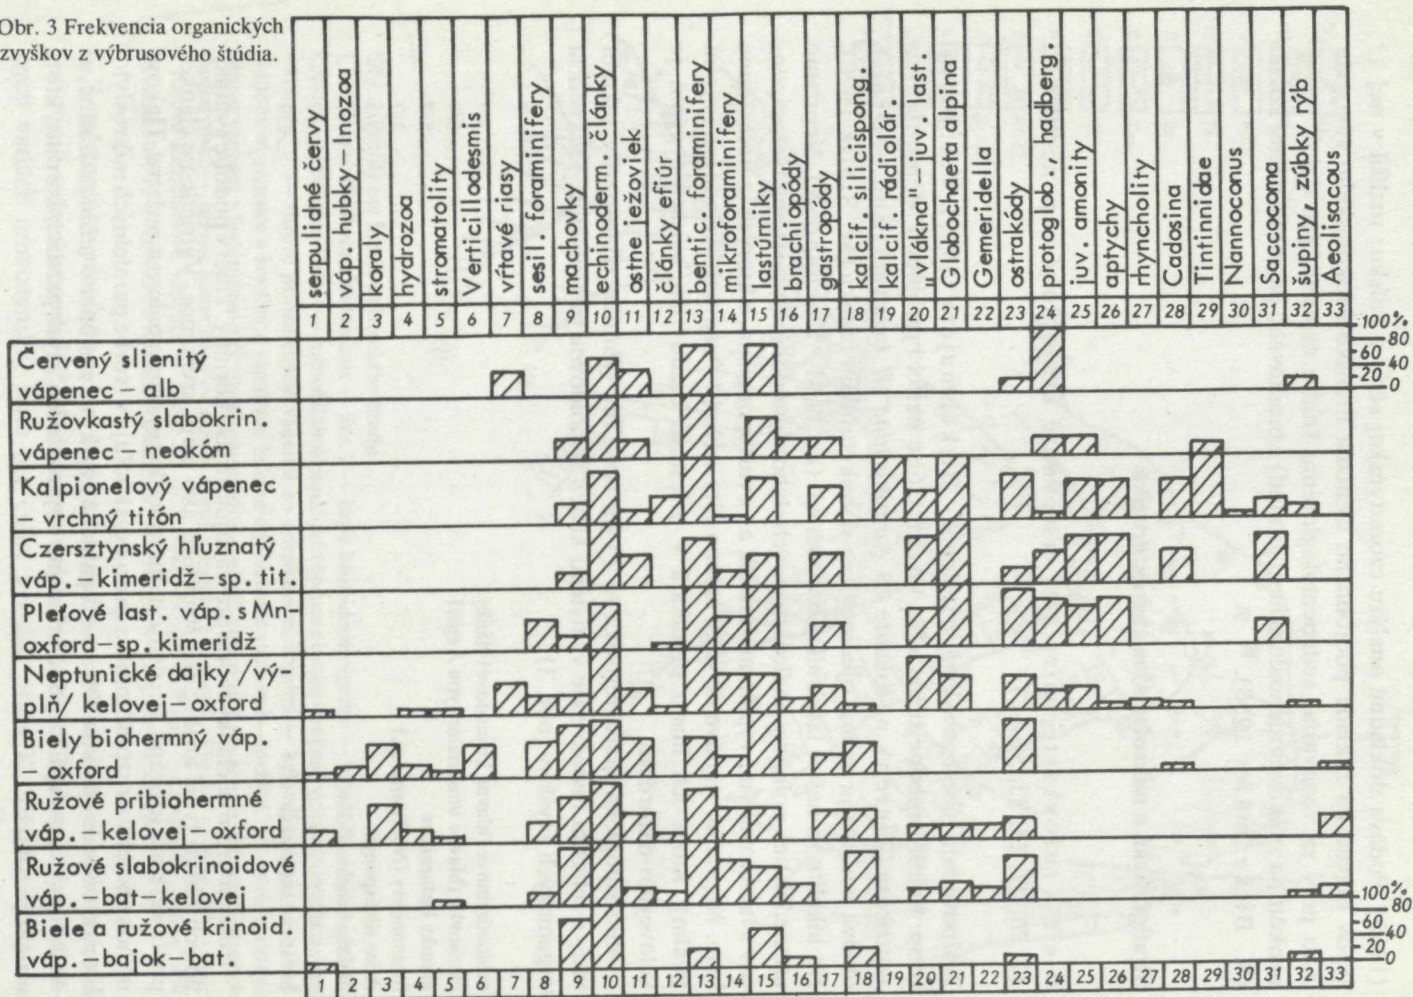 Obr. 3 Frekvencia organických
zvyškov z výbrusového štúdia.
serpulidné červy
váp. hubky – Inozoa
koraly
hydrozoa
stromatolity
Verticillodesmis
vŕtavé riasy
sesil. foraminifery
machovky
echinoderm. články
ostne ježoviek
články efiúr
bentic. foraminifery
mikroforaminifery
lastúrniky
brachiopódy
gastropódy
kalcif. silicispong.
kalcif. rádiolár.
„vlákna" – juv. last.
Globochaeta alpina
Gemeridella
ostrakódy
protoglob., hadberg.
juv. amonity
aptychy
rhyncholity
Cadosina
Tintinnidae
Nannoconus
Saccocoma
šupiny, zúbky rýb
Aeolisacous
1 2 3 4 5 6 7 8 9 10 11 12 13 14 15 16 17 18 19 20 21 22 23 24 25 26 27 28 29 30 31 32 33
100%
80
60
40
20
0
Červený slienitý
vápenec – alb
Ružovkastý slabokrin.
vápenec – neokóm
Kalpionelový vápenec
– vrchný titón
Czersztynský hľuznatý
váp. – kimeridž – sp. tit.
Pleťové last. váp. s Mn-
oxford – sp. kimeridž
Neptunické dajky /vý-
plň/ kelovej – oxford
Biely biohermný váp.
– oxford
Ružové pribiohermné
váp. – kelovej – oxford
Ružové slabokrinoidové
váp. – bat – kelovej
Biele a ružové krinoid.
váp. – bajok – bat.
100%
80
60
40
20
0
1 2 3 4 5 6 7 8 9 10 11 12 13 14 15 16 17 18 19 20 21 22 23 24 25 26 27 28 29 30 31 32 33